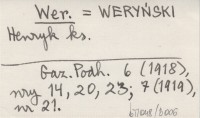 Wer. = WERYŃSKI
Henryk ks.
Gaz. Podh. 6 (1918),
nry 14, 20, 23; 7 (1919),
nr 21.